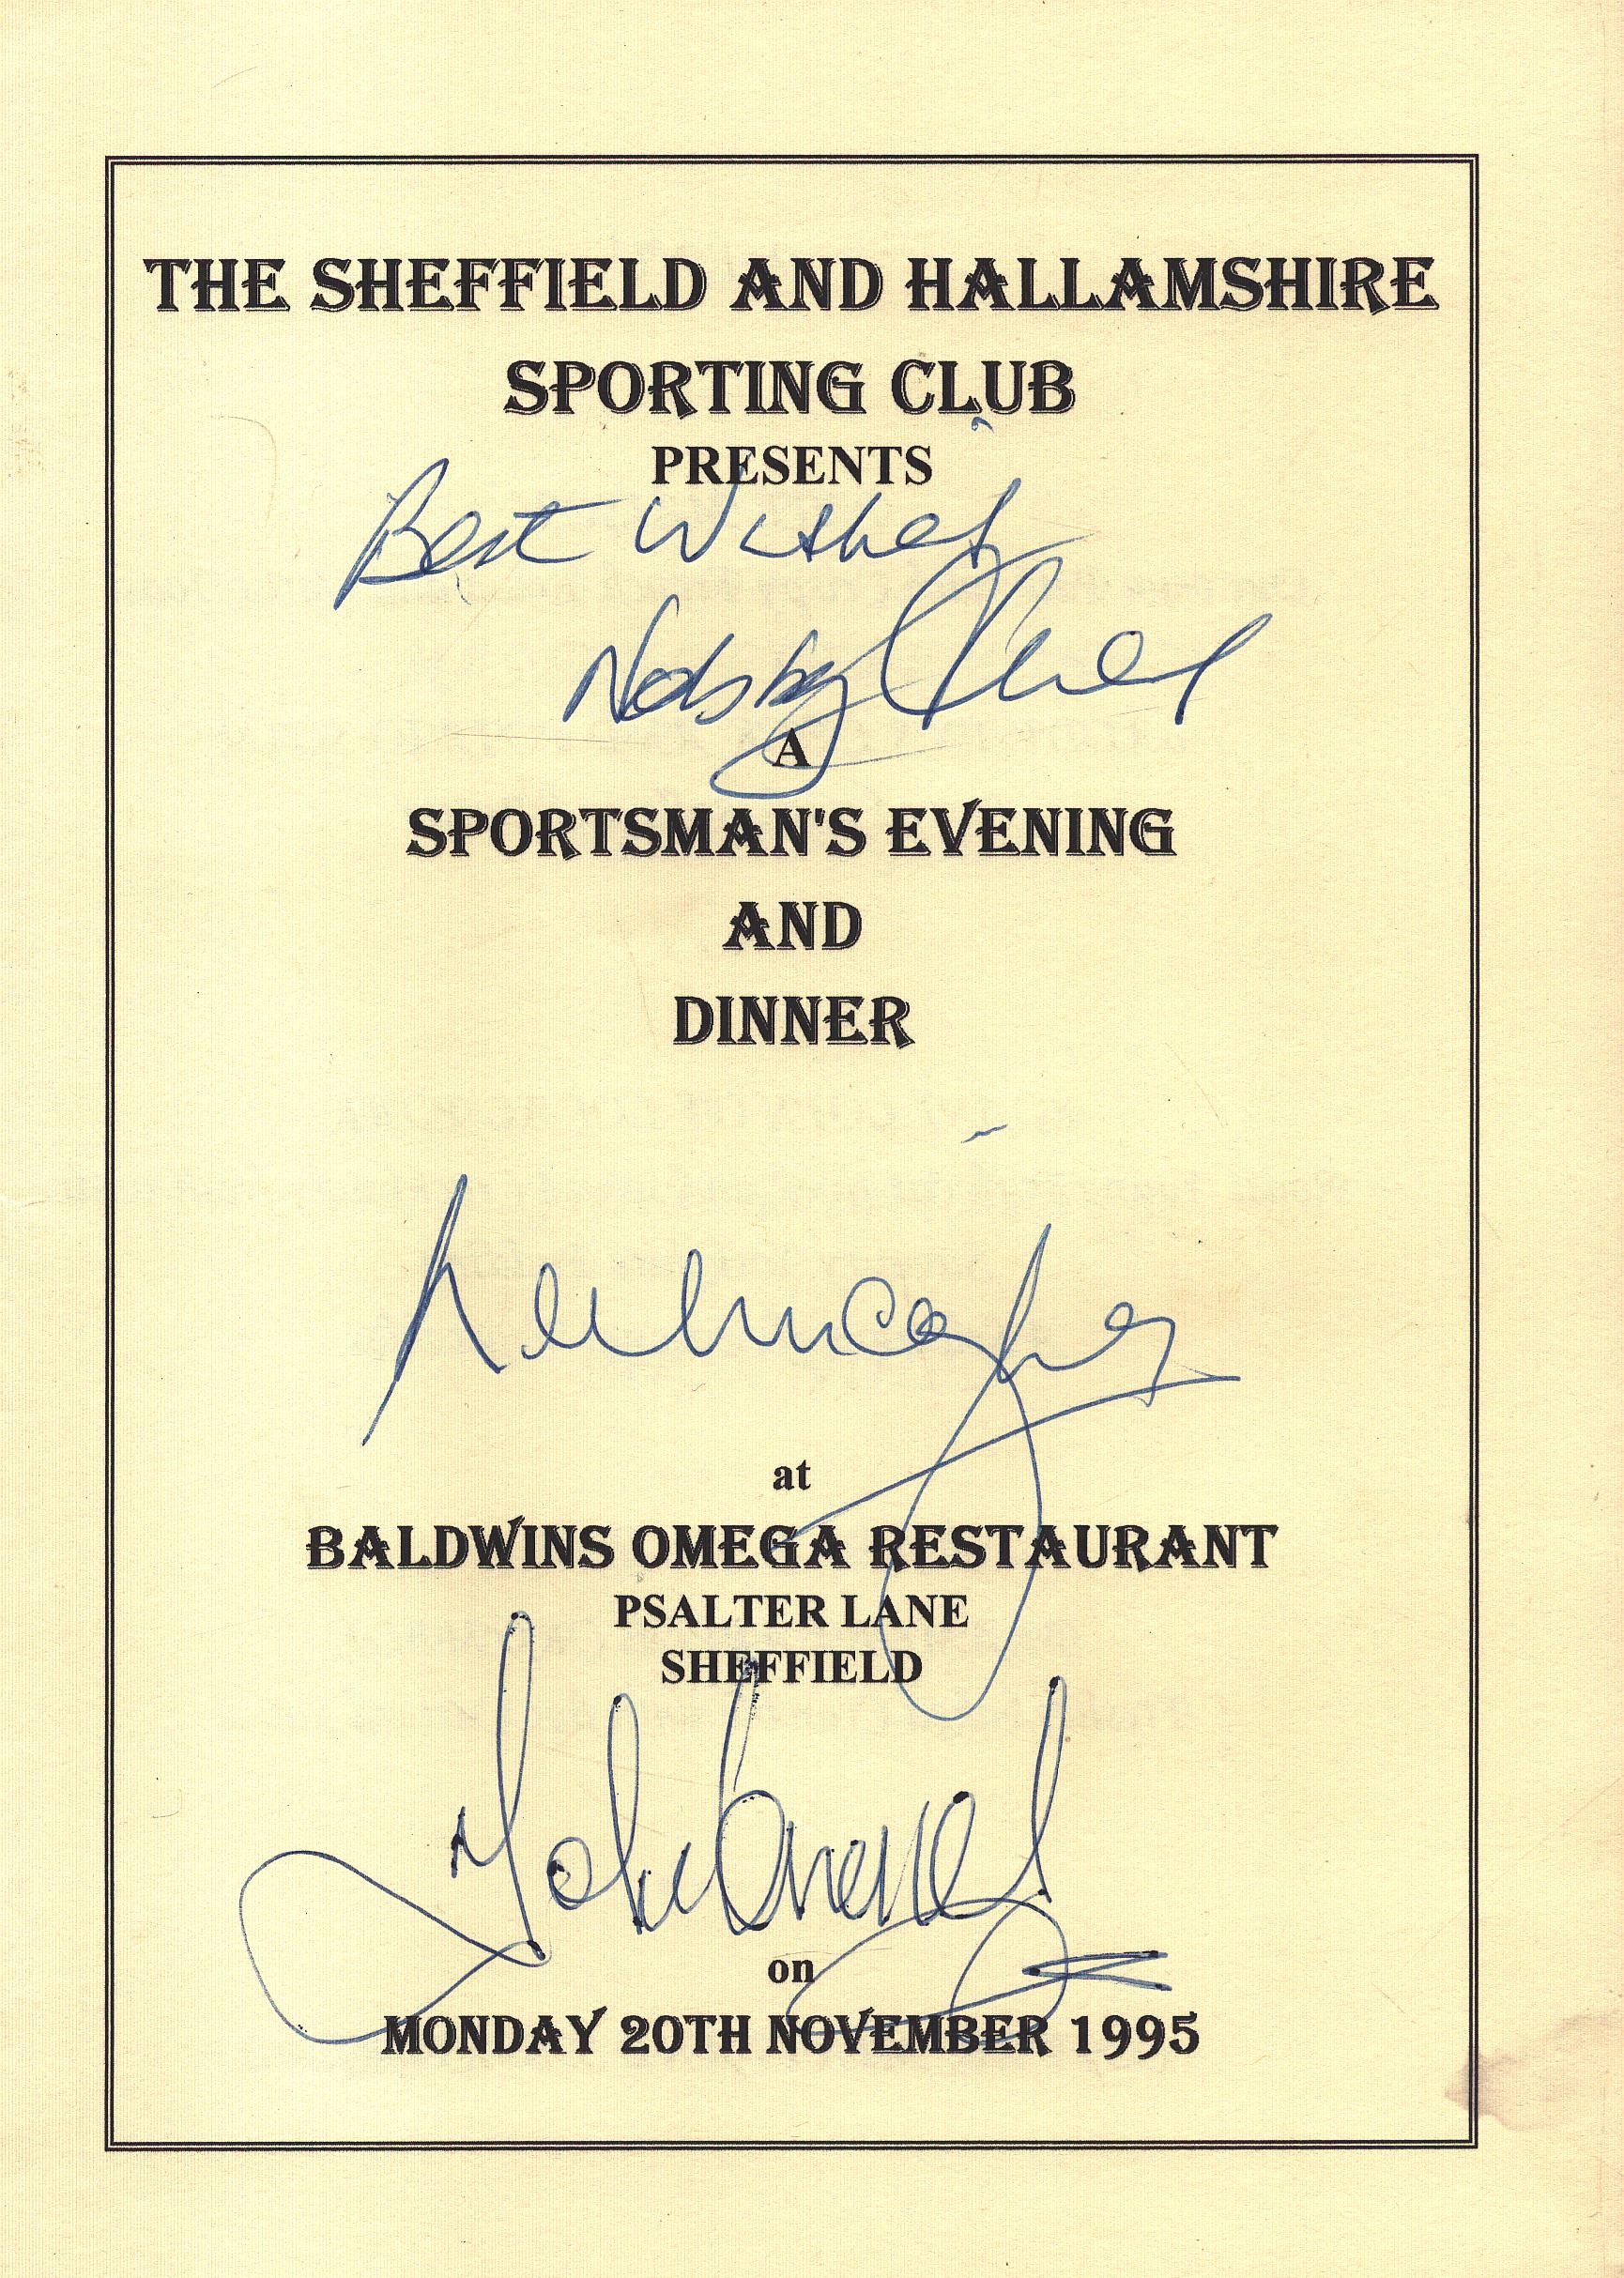 THE SHEFFIELD AND HALLAMSHIRE
SPORTING CLUB
PRESENTS
Best Wishes
Nobby
A
SPORTSMAN'S EVENING
AND
DINNER
at
BALDWINS OMEGA RESTAURANT
PSALTER LANE
SHEFFIELD
on
MONDAY 20TH NOVEMBER 1995